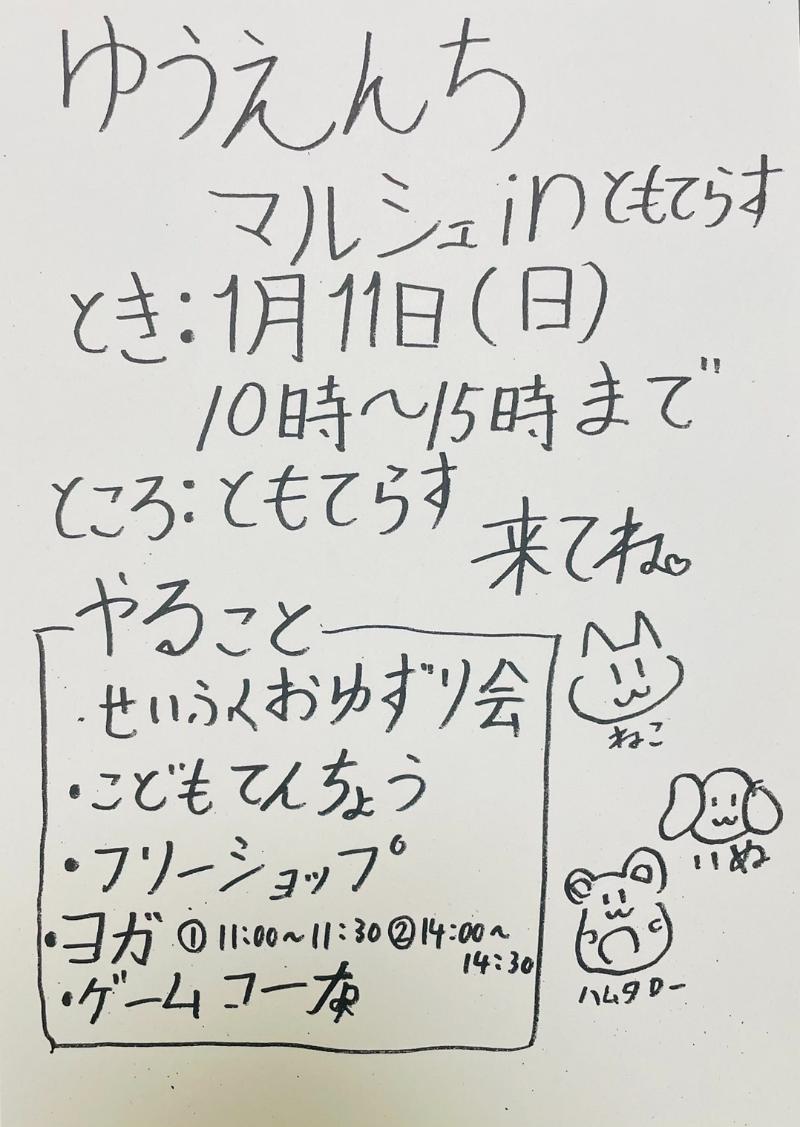 ゆうえんち
マルシェinともてらす
とき:1月11日(日)
10時～15時まで
ところ:ともてらす
来てね
やること
・せいふくおゆずり会
・こどもてんちょう
・フリーショップ
・ヨガ ①11:00～11:30②14:00～
14:30
・ゲームコー
ねこ
いぬ
ハムタロー